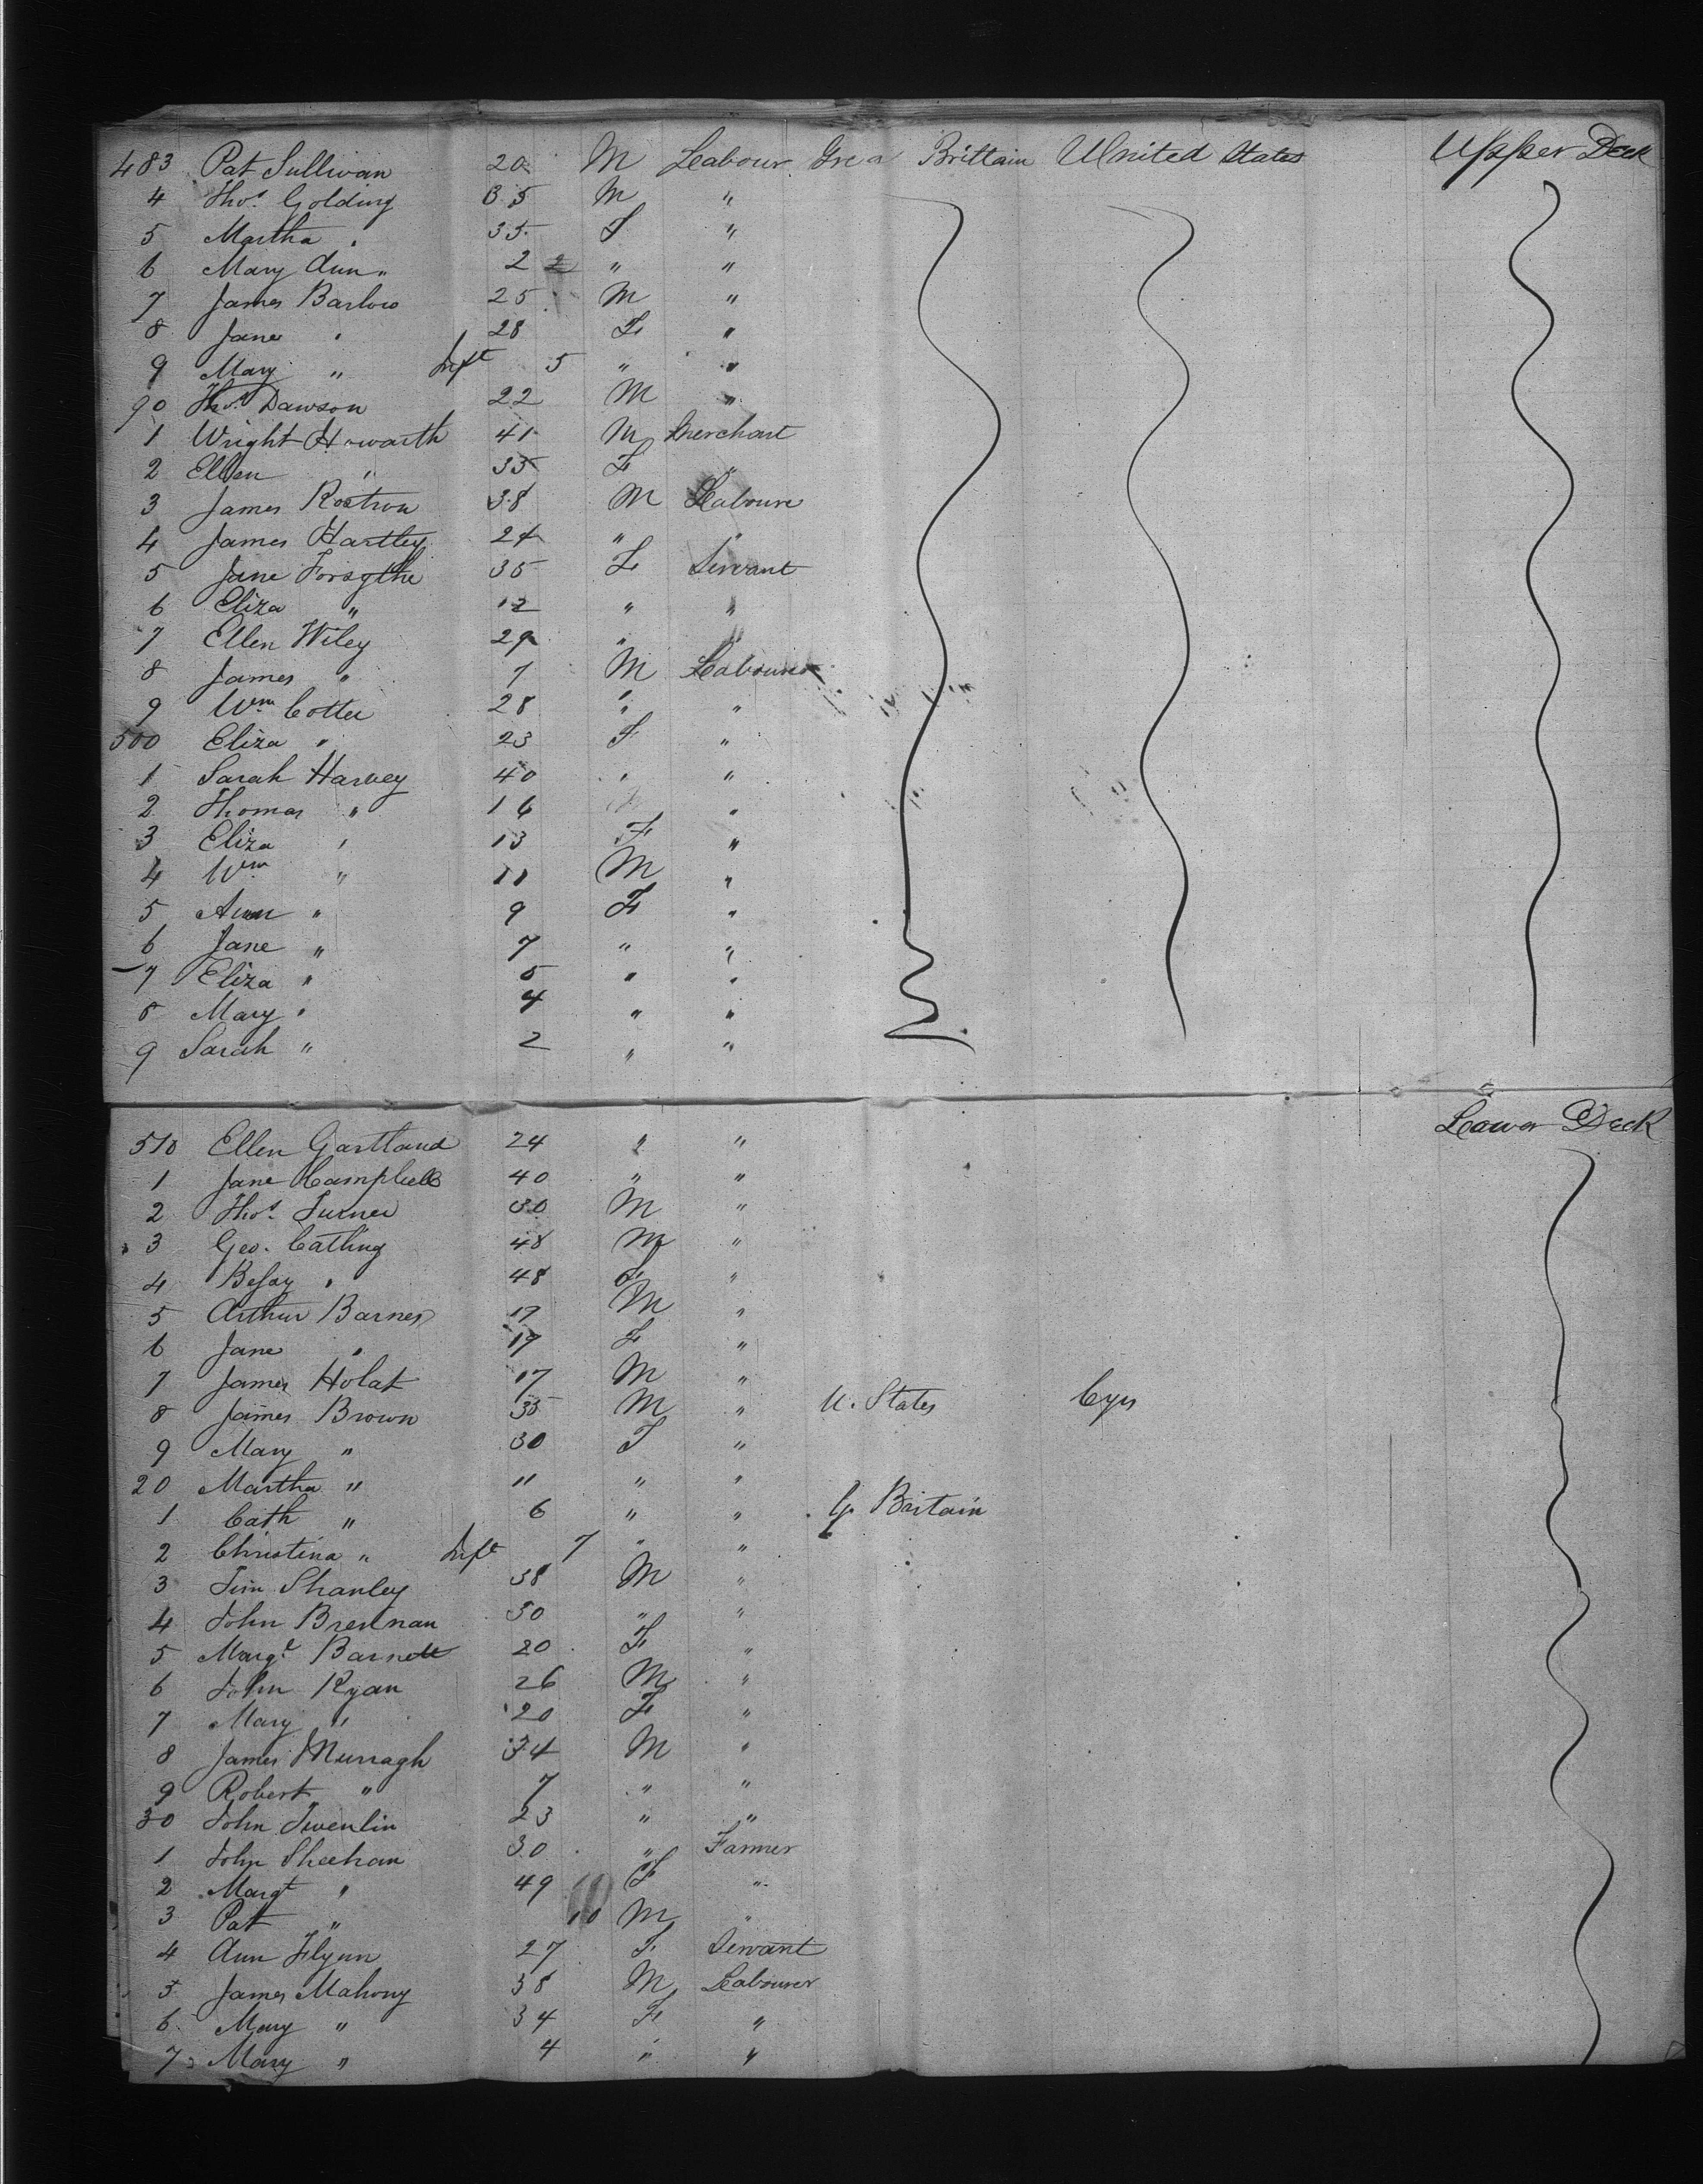 483 Pat Sullivan 20 M Labour Grea Brittain United States Upper Deck
4 Thos. Golding 35 M "
5 Martha " 35 F "
6 Mary Ann " 2 " "
7 James Barlow 25 M "
8 Jane " 28 F "
9 Mary " Inft 5 " "
90 Thos. Dawson 22 M "
1 Wright Howarth 41 M Merchant
2 Ellen " 35 F "
3 James Rostron 38 M Laboure
4 James Hartley 24 " "
5 Jane Forsythe 35 F Servant
6 Eliza " 12 " "
7 Ellen Wiley 29 " "
8 James " 7 M Labourer
9 Wm Cotter 28 " "
500 Eliza " 23 F "
1 Sarah Harvey 40 " "
2 Thomas " 16 "
3 Eliza " 13 F "
4 Wm " 11 M "
5 Ann " 9 F "
6 Jane " 7 " "
7 Eliza " 5 " "
8 Mary " 4 " "
9 Sarah " 2 " "
Lower Deck
510 Ellen Gartland 24 " "
1 Jane Campbell 40 " "
2 Thos. Turner 30 M "
3 Geo. Catling 48 M "
4 Besay " 48 F "
5 Arthur Barnes 17 M "
6 Jane " 19 F "
7 James Holat 17 M "
8 James Brown 35 M " U. States
9 Mary " 30 F "
20 Martha " 11 " "
1 Cath " 6 " " G. Bartain
2 Christina " Inft 7 " "
3 Tim Shanley 38 M "
4 John Brennan 30 " "
5 Margt Barnett 20 F "
6 John Ryan 26 M "
7 Mary " 20 F "
8 James Murragh 34 M "
9 Robert " 7 " "
30 John Twenlin 23 " "
1 John Sheehan 30 " Farmer
2 Margt " 49 F "
3 Pat " 10 M "
4 Ann Flynn 27 F Servant
5 James Mahony 38 M Labourer
6 Mary " 34 F "
7 Mary " 4 " "